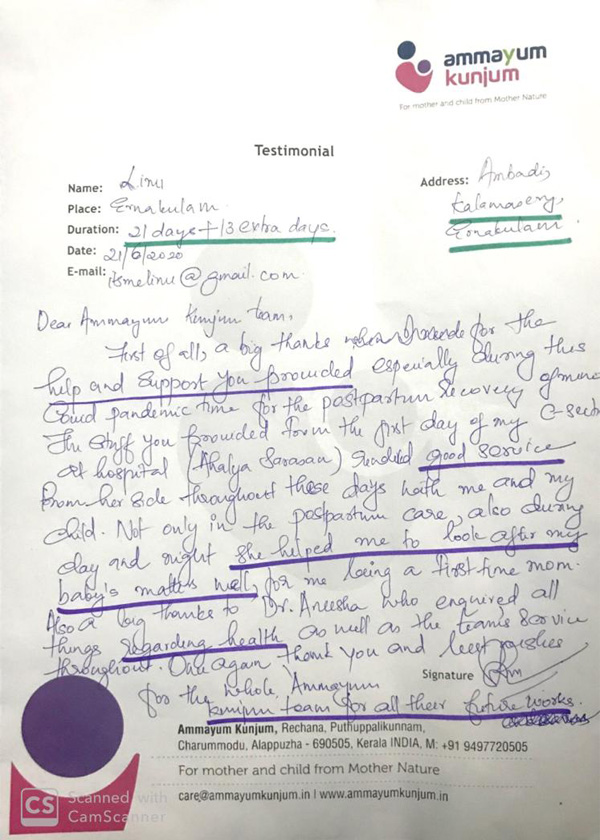 ammayum
kunjum
For mother and child from Mother Nature
Testimonial
Name: Linu
Place: Ernakulam
Duration: 21 days + 13 extra days.
Date: 21/6/2020
E-mail: itsmelinu@gmail.com
Address: Ambadi,
Kalamassery,
Ernakulam
Dear Ammayum Kunjum team,
First of all, a big thanks for the
help and support you provided especially during this
Covid pandemic time for the postpartum recovery of mine
The staff you provided from the first day of my C-sect
at hospital (Ahalya Sarasan) rendered good service
from her side throughout these days with me and my
child. Not only in the postpartum care, also during
day and night she helped me to look after my
baby's matters well, for me being a first time mom.
Also a big thanks to Dr. Aneesha who enquired all
things regarding health as well as the team's service
throughout. Once again thank you and best wishes
for the whole, Ammayum
Kunjum team for all their future works.
Signature
Ammayum Kunjum, Rechana, Puthuppalikunnam,
Charummodu, Alappuzha - 690505, Kerala INDIA, M: +91 9497720505
For mother and child from Mother Nature
care@ammayumkunjum.in | www.ammayumkunjum.in
CS Scanned with
CamScanner